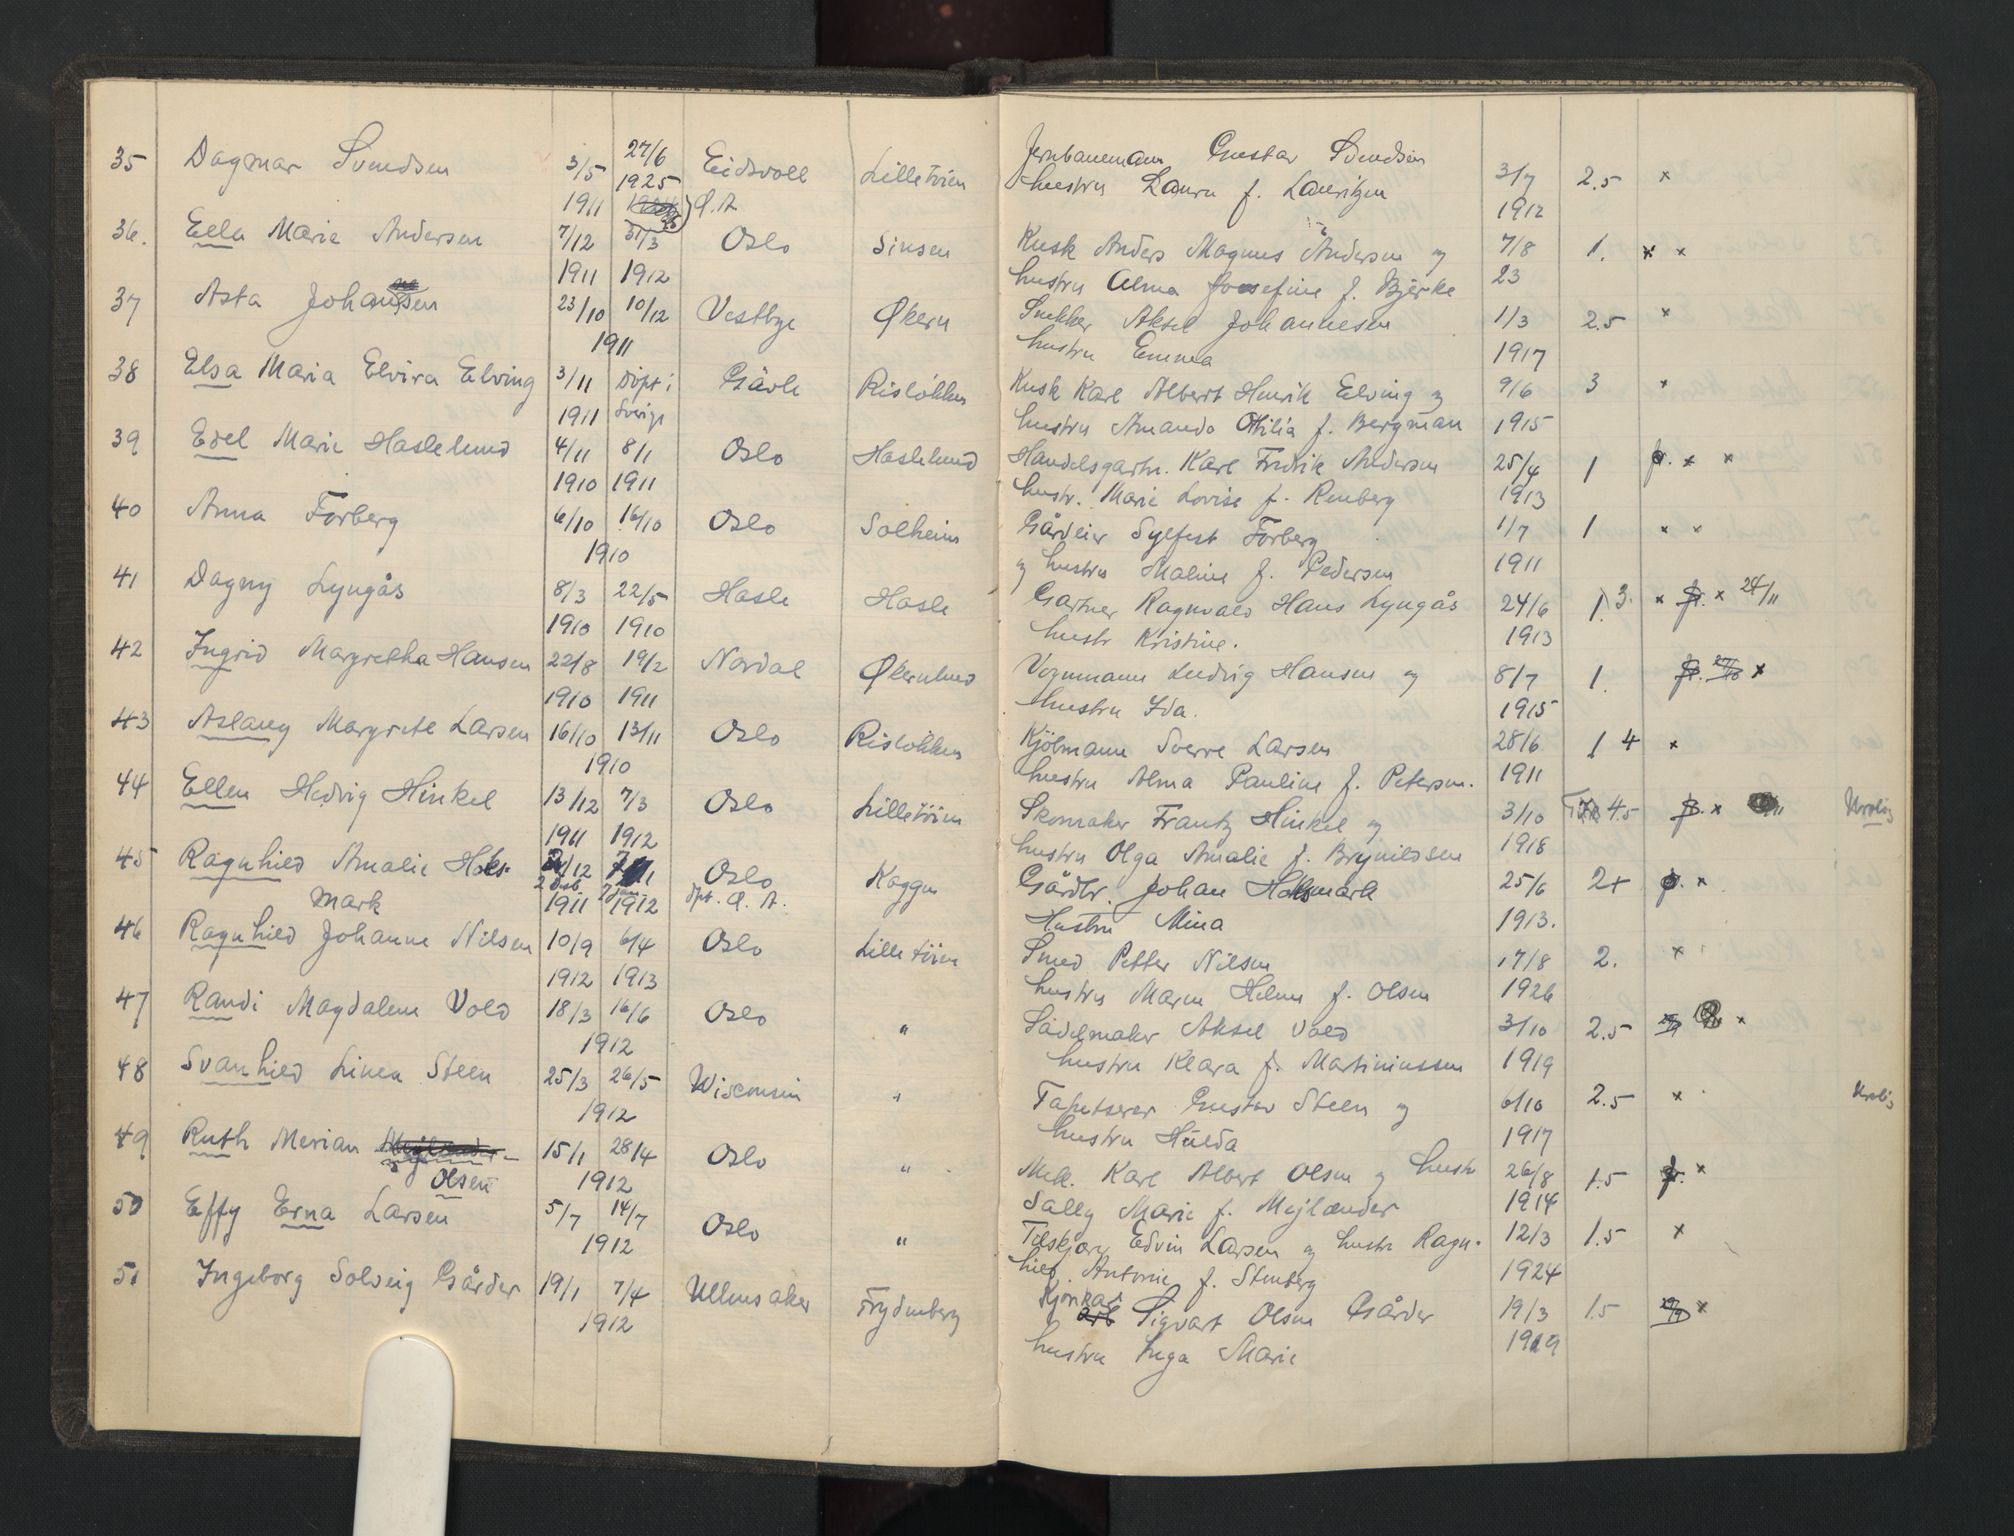 35 Dagmar Svendsen 3/5 1911 27/6 1925 Eidsvoll Lilletöien Jernbanemann Gustav Svendsen 3/7 1912 2.5 x
d.A. hustru Laura f. Lauritzen
36. Ella Marie Andersen 7/12 1911 31/3 1912 Oslo Sinsen Kusk Anders Magnus Andersen og 7/8 23 1. x x
hustru Alma Josefine f. Bjerke
37 Asta Johansen 23/10 10/12 1911 Vestbye Økern Snekker Aksel Johannesen 1/3 1917 2.5 x
hustru Emma
38 Elsa Maria Elvira Elving 3/11 1911 döpt i Sverige Gävle Risløkken Kusk Karl Albert Henrik Elving og 9/6 1915 3 x
hustru Amanda Ottilia f. Bergman
39 Edel Marie Haslelund 4/11 1910 8/1 1911 Oslo Haslelund Handelsgartn. Karl Fredrik Andersen 25/4 1913 1 fr. x x
hustr. Marie Lovise f. Renberg
40 Anna Forberg 6/10 16/10 1910 Oslo Solheim Gårdeier Sylfest Forberg 1/7 1911 1 x x
og hustru Maline f. Pedersen
41 Dagny Lyngås 8/3 1910 22/5 1910 Hasle Hasle Gartner Ragnvald Hans Lyngås 24/6 1913 1. 3. x fr. x 24/11
hustr Kristine.
42 Ingrid Margretha Hansen 22/8 1910 19/2 1911 Nordal Økernlund Vognmann Ludvig Hansen og 8/7 1915 1. fr. x
hustru Ida.
43 Aslaug Margrete Larsen 16/10 13/11 1910 Oslo Risløkken Kjölmann Sverre Larsen 28/6 1911 1 4 x
hustru Alma Pauline f. Petersen.
44 Ellen Hedvig Hinkel 13/12 1911 7/3 1912 Oslo Lilletöien Skomaker Frantz Hinkel og 3/10 1918 4.5 fr. x Urolig
hustru Olga Amalie f. Brynildsen
45 Ragnhild Amalie Hols- 2 des. 1911 7 jan 1912 Oslo Kaggen Gårdbr. Johan Holsmark 25/6 1913. 2+ x
mark dpt. Ø. A. Hustru Mina
46 Ragnhild Johanne Nilsen 10/9 1912 6/4 1913 Oslo Lilletöien Smed Petter Nilsen 17/8 1926 2. x
hustru Maren Helene f. Olsen
47 Randi Magdalene Vold 18/3 16/6 1912 Oslo " Sadelmaker Aksel Vold 3/10 1919 2.5 x
hustru Klara f. Martiniussen
48 Svanhild Linea Steen 25/3 26/5 1912 Wisconsin " Tapetserer Gustav Steen og 6/10 1917 2.5 x Urolig
hustru Hulda
49 Ruth Merian 15/1 28/4 1912 Oslo " Mek. Karl Albert Olsen og hustr 26/8 1914 1.5 fr. x
Olsen Sally Marie f. Mejlænder
50 Effy Erna Larsen 5/7 14/7 1912 Oslo " Tilskjærer Edvin Larsen og hustr Ragn- 12/3 1924 1.5 x
hild Antonie f. Stenberg
51 Ingeborg Solveig Gårder 19/1 7/4 1912 Ullensaker Frydenberg Sigvart Olsen Gårder 19/3 1919 1.5 x
hustru Inga Marie